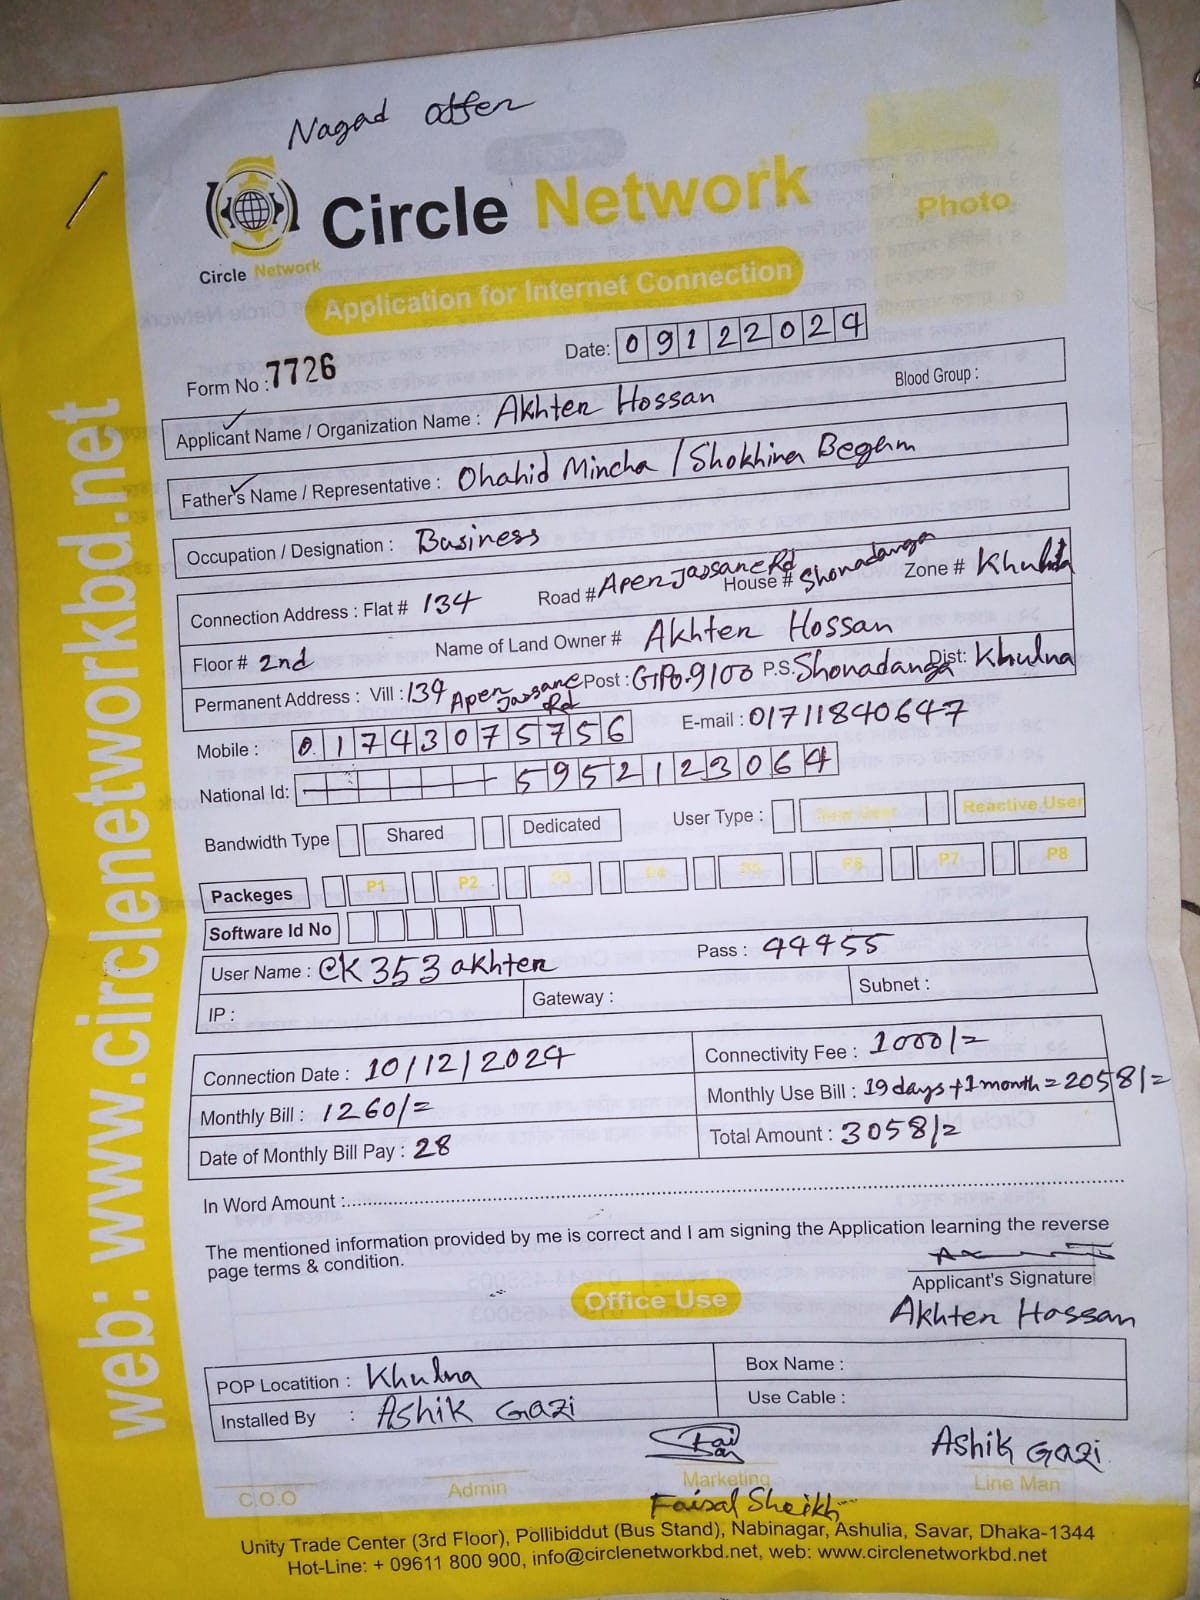 Nagad offer
Circle Network
Circle Network
Photo
Application for Internet Connection
Form No : 7726
Date: 09122024
Applicant Name / Organization Name : Akhter Hossan
Blood Group :
Father's Name / Representative : Ohahid Mincha / Shokhina Begum
Occupation / Designation : Business
Connection Address : Flat # 134 Road # Aper Jassane Rd House # Shonadanga Zone # Khulna
Floor # 2nd Name of Land Owner # Akhter Hossan
Permanent Address : Vill : 134 Aper Jassane Rd Post : GPO-9100 P.S. Shonadanga Dist: Khulna
Mobile : 01743075756 E-mail : 01711840647
National Id: 5952123064
Bandwidth Type Shared Dedicated User Type : New User Reactive User
Packeges P1 P2 P3 P4 P5 P6 P7 P8
Software Id No
User Name : CK353akhter Pass : 44455
IP : Gateway : Subnet :
Connection Date : 10/12/2024 Connectivity Fee : 1000/=
Monthly Bill : 1260/= Monthly Use Bill : 19 days + 1 month = 2058/=
Date of Monthly Bill Pay : 28 Total Amount : 3058/=
In Word Amount :
The mentioned information provided by me is correct and I am signing the Application learning the reverse
page terms & condition.
Applicant's Signature
Office Use
Akhter Hossan
POP Locatition : Khulna Box Name :
Installed By : Ashik Gazi Use Cable :
Ashik Gazi
C.O.O Admin Marketing Line Man
Faisal Sheikh
Unity Trade Center (3rd Floor), Pollibiddut (Bus Stand), Nabinagar, Ashulia, Savar, Dhaka-1344
Hot-Line: + 09611 800 900, info@circlenetworkbd.net, web: www.circlenetworkbd.net
web: www.circlenetworkbd.net